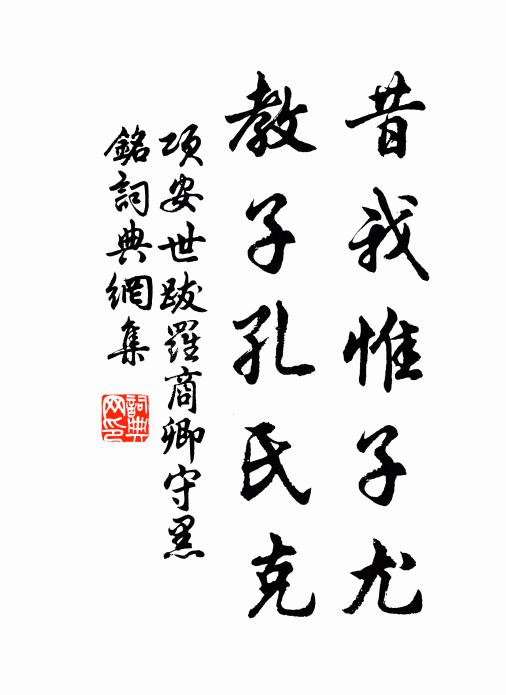 昔我惟子尤
教子孔氏克
項安世跋羅商卿守黑
銘詞典網集
詞典網印